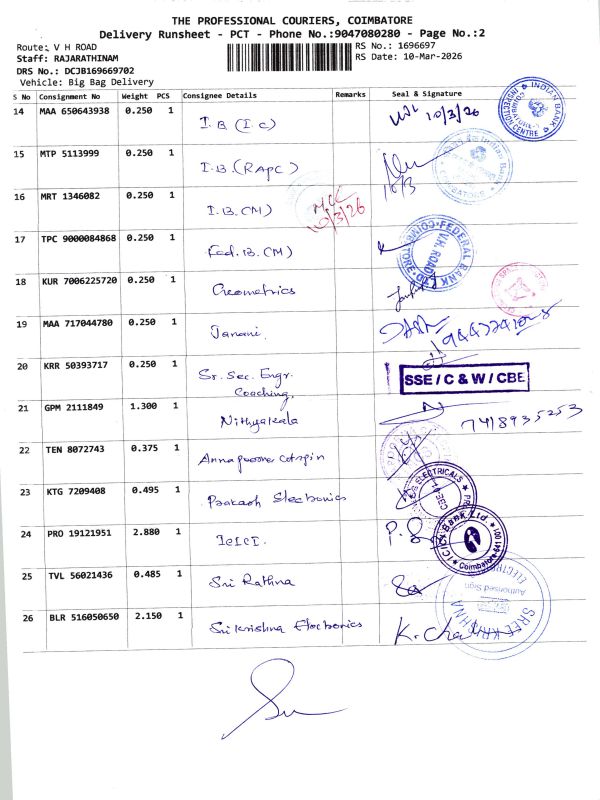 THE PROFESSIONAL COURIERS, COIMBATORE
Delivery Runsheet - PCT - Phone No.:9047080280 - Page No.:2
Route: V H ROAD
RS No.: 1696697
Staff: RAJARATHINAM
RS Date: 10-Mar-2026
DRS No.: DCJB169669702
Vehicle: Big Bag Delivery
S No Consignment No Weight PCS Consignee Details Remarks Seal & Signature
14 MAA 650643938 0.250 1 I.B (I.C) 10/3/26
INDIAN BANK INSPECTION CENTRE
15 MTP 5113999 0.250 1 I.B. (RAPC)
Indian Bank
16 MRT 1346082 0.250 1 I.B. (M) 10/3/26
17 TPC 9000084868 0.250 1 Fed. B. (M)
FEDERAL BANK V.H. ROAD COIMBATORE
18 KUR 7006225720 0.250 1 Geometrics
19 MAA 717044780 0.250 1 Janani
20 KRR 50393717 0.250 1 Sr. Sec. Engr.
Coaching,
SSE / C & W / CBE
21 GPM 2111849 1.300 1 Nithyakala 7418935253
22 TEN 8072743 0.375 1 Annapoorna
23 KTG 7209408 0.495 1 Prakash Electronics
ELECTRICALS CBE
24 PRO 19121951 2.880 1 ICICI.
ICICI Bank Ltd. Coimbatore
25 TVL 56021436 0.485 1 Sri Rathna
26 BLR 516050650 2.150 1 Sri krishna Electronics
SREE KRISHNA Authorised Sign